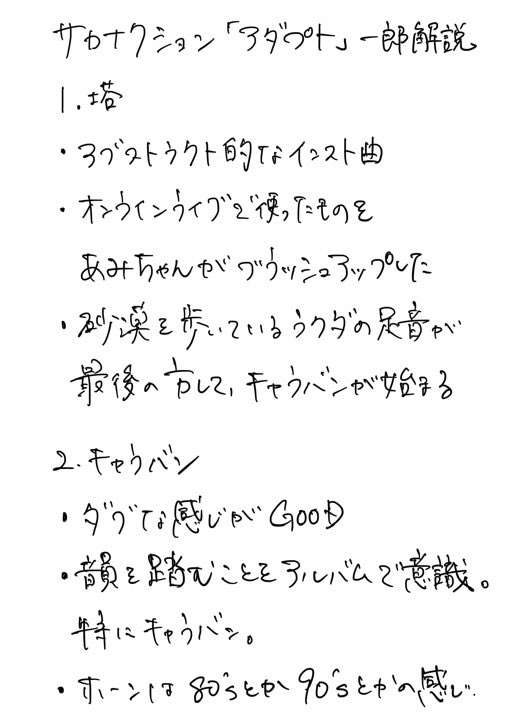 サカナクション「アダプト」一郎解説
1.塔
・アブストラクト的なインスト曲
・オンラインライブで使ったものを
あみちゃんがブラッシュアップした
・砂漠を歩いているラクダの足音が
最後の方して、キャラバンが始まる
2.キャラバン
・ダブな感じがGOOD
・韻を踏むことをアルバムで意識。
特にキャラバン。
・ホーンは80'sとか90'sとかの感じ